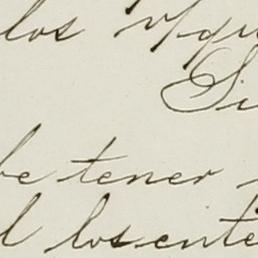 los
Si
be tener
l los ente